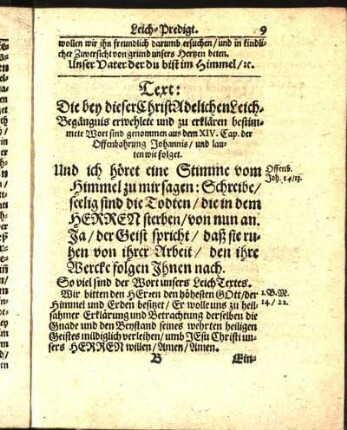 Leich-Predigt. 9
wollen wir ihn freundlich darumb ersuchen/ und in kindli-
cher Zuversicht von grund unsers Hertzen beten.
Unser Vater der du bist im Himmel/ ꝛc.
Text:
Die bey dieser ChristAdelichen Leich-
Begängnis erwehlete und zu erklären bestim-
mete Wort sind genommen aus dem XIV. Cap. der
Offenbahrung Johannis/ und lau-
ten wie folget.
Und ich höret eine Stimme vom
Offenb.
Joh. 14/13.
Himmel zu mir sagen: Schreibe/
seelig sind die Todten/ die in dem
HERREN sterben/ von nun an.
Ja/ der Geist spricht/ daß sie ru-
hen von ihrer Arbeit/ den ihre
Wercke folgen Ihnen nach.
So viel sind der Wort unsers Leich Textes.
Wir bitten den HErren den höhesten GOtt/ der
1. B. M.
14/ 22.
Himmel und Erden besitzet/ Er wolle uns zu heil-
sahmer Erklärung und Betrachtung derselben die
Gnade und den Beystand seines wehrten heiligen
Geistes mildiglich verleihen/ umb JEsu Christi un-
sers HERREN willen/ Amen/ Amen.
B Ein-